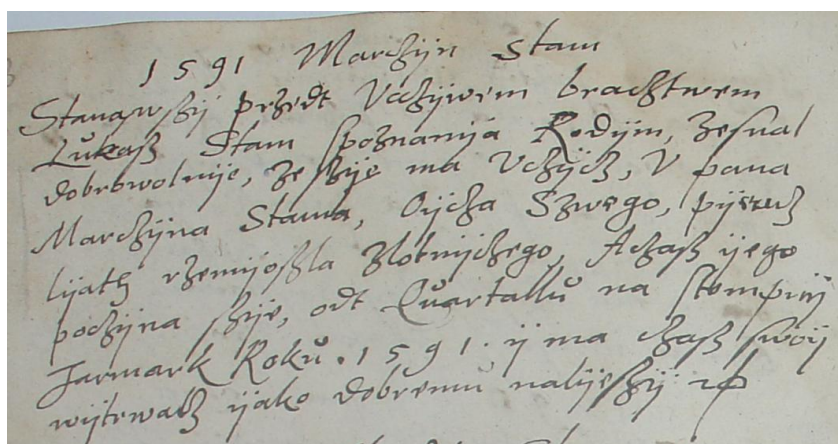 1591 Marczijn Stam
Stanąwszij przedt Vczijwem bractwem
Lukasz Stam spoznanija Rodijm, zesnal
dobrowolnije, że szije ma Vczijcz, V pana
Marczijna Stama, Oijcza Szwego, pijeucz
lijath rzemijosla Zlotnijczego, Aczasz ijego
poczijna szije, odt Quartallŭ na stempnij
Jarmark Rokŭ. 1591. ij ma czasz swoij
wijtrwacz ijako dobremŭ nalijeszij